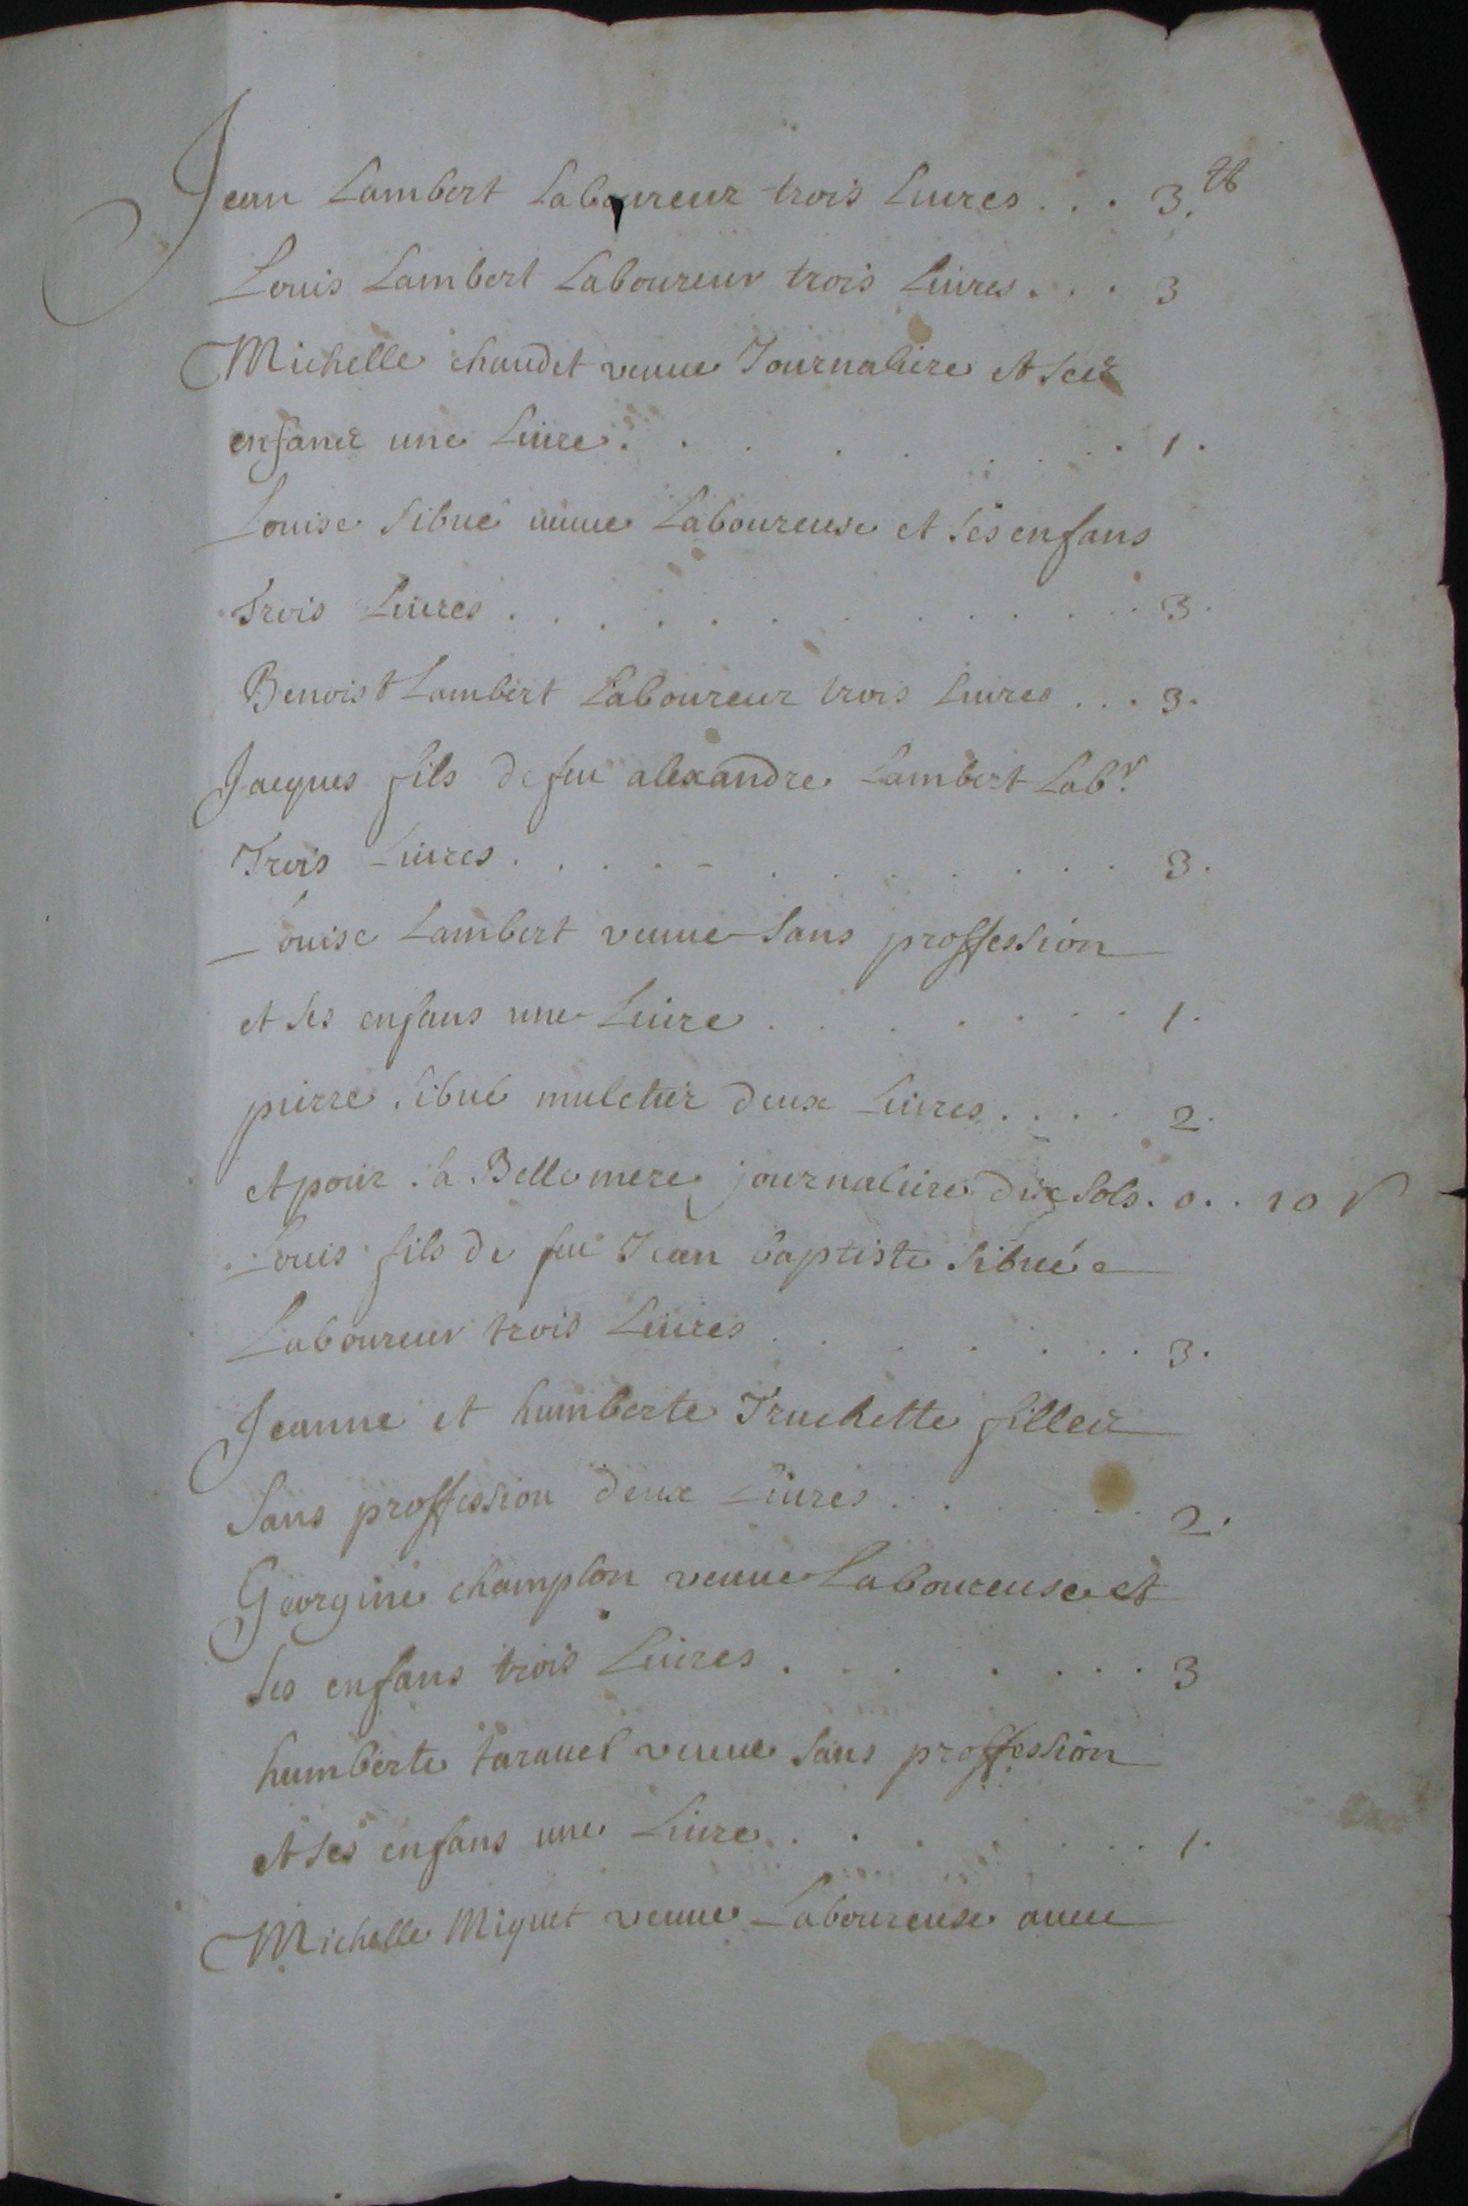 Jean Lambert Laboureur trois Liures . . . 3.₶
Louis Lambert Laboureur trois Liures . . . 3
Michelle chaudet veuue Journaliere et ses
enfans une Liure . . . . . . . . . 1.
Louise Sibué veuue Laboureuse et ses enfans
Trois Liures . . . . . . . . . . . . 3.
Benoist Lambert Laboureur trois Liures . . . 3.
Jacques fils de feu alexandre Lambert Labr.
Trois Liures . . . . - . . . . . . . 3.
Louise Lambert veuue sans proffession
et ses enfans une Liure . . . . . . . 1.
pierre Sibué muletier deux Liures . . . . 2.
et pour sa Belle mere journaliere dix sols . 0 . . 10 s
Louis fils de feu Jean baptiste Sibué
Laboureur trois Liures . . . . . . . 3.
Jeanne et humberte Truchette filles
sans proffession deux Liures . . . . . . 2.
Georgine champlon veuue Laboureuse et
ses enfans trois Liures . . . . . . . 3
humberte tarauel veuue sans proffession
et ses enfans une Liure . . . . . . . 1.
Michelle Miquet veuue Laboureuse auec